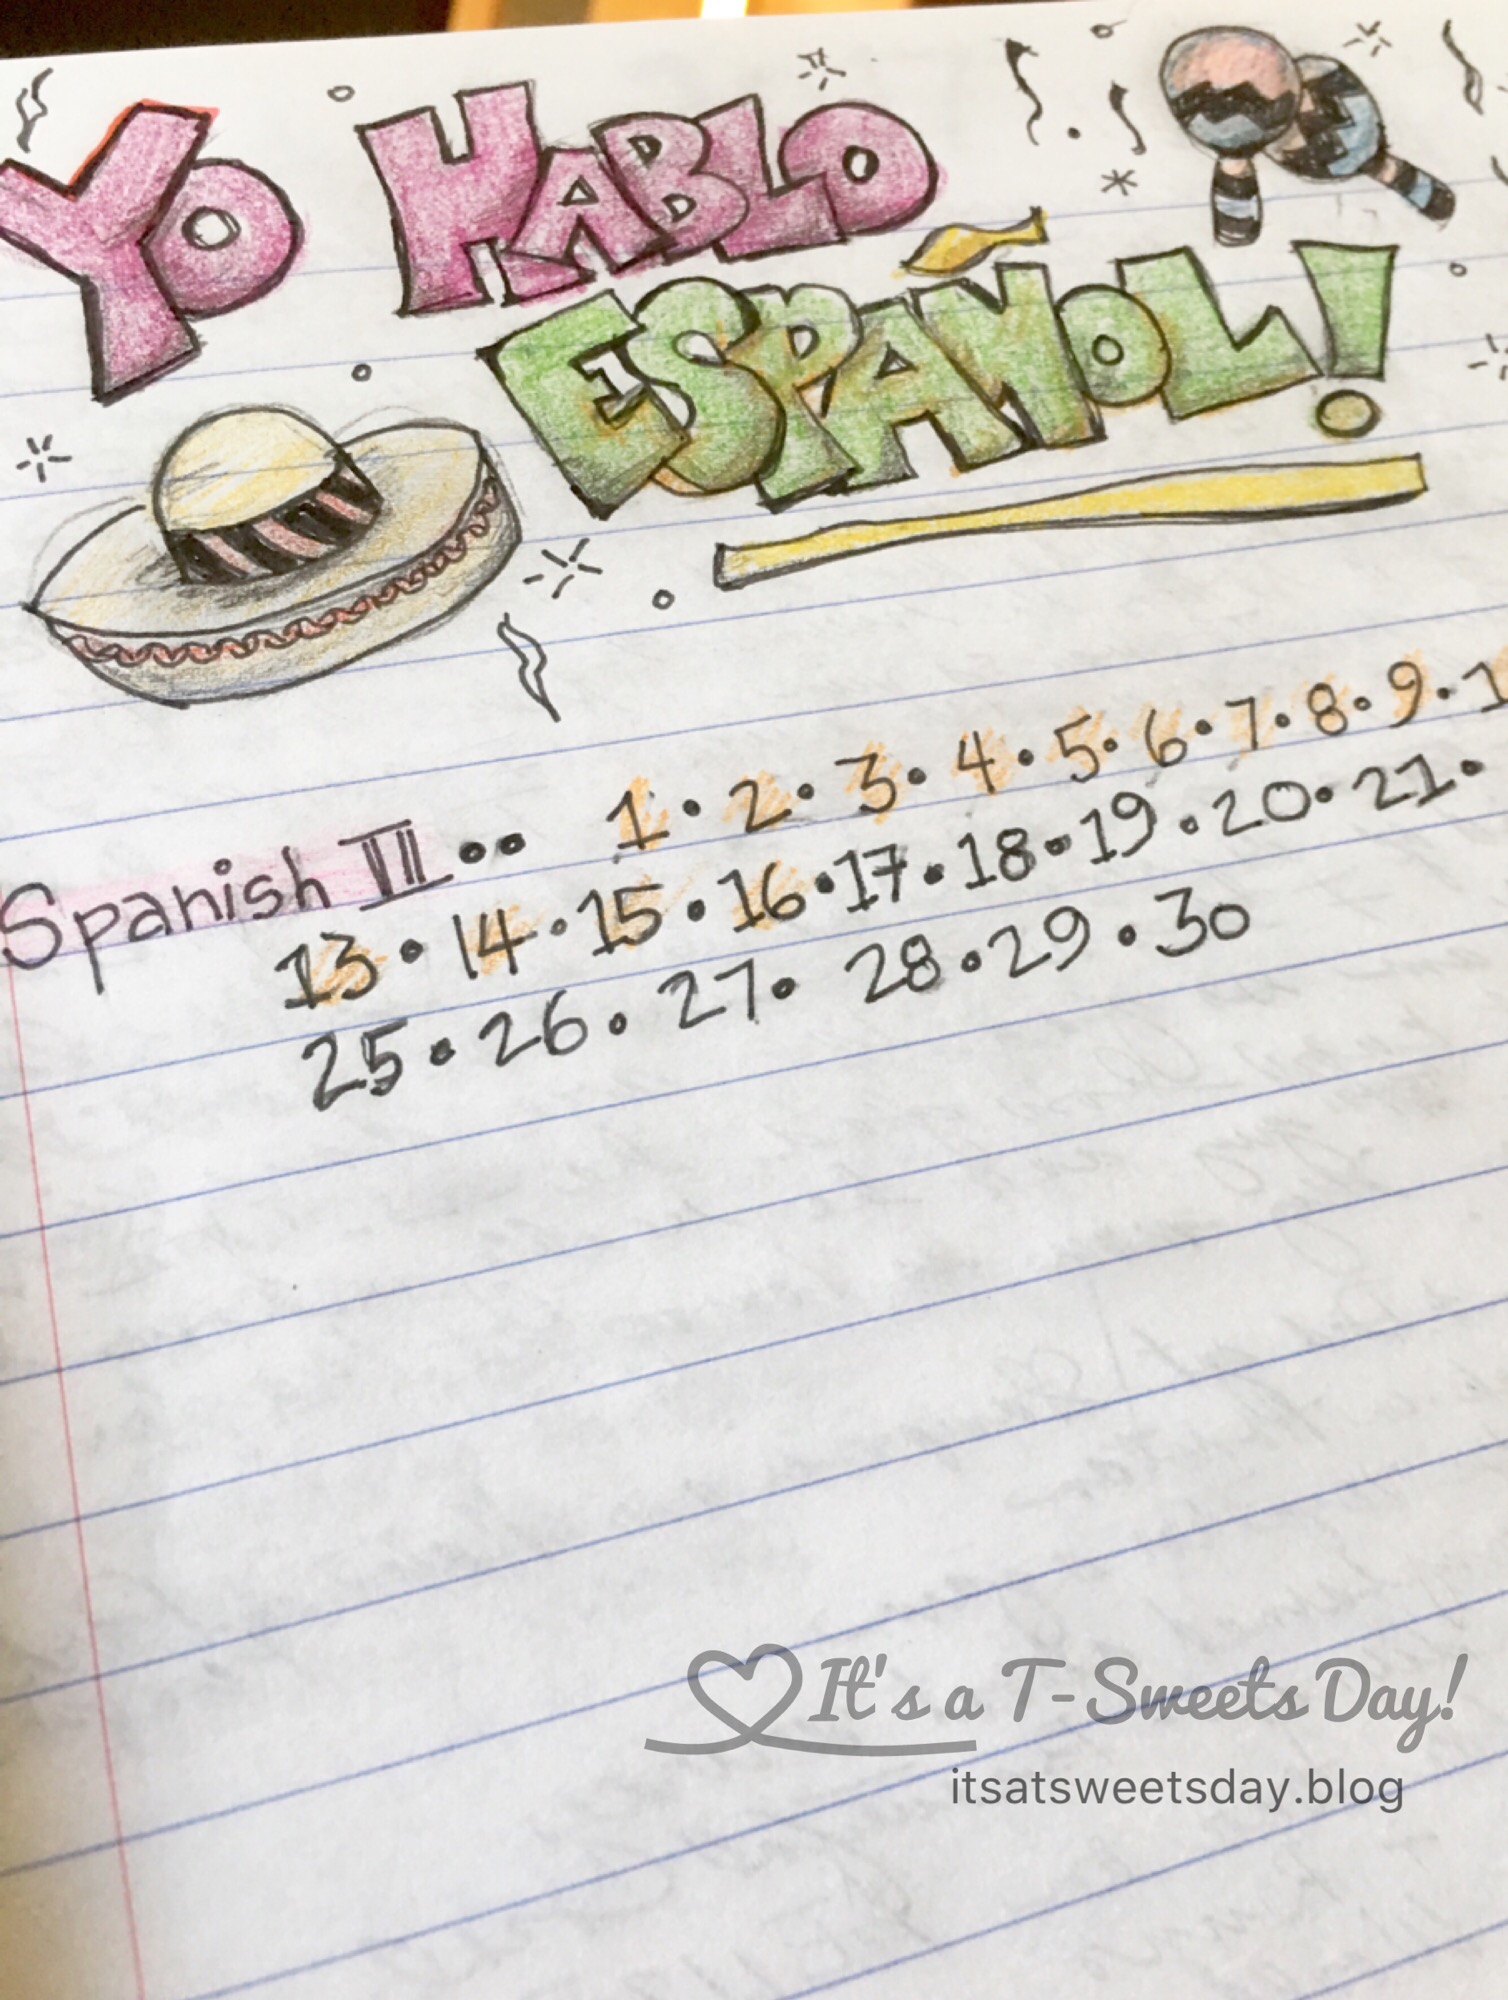 YO HABLO
ESPAÑOL!
Spanish III •• 1 • 2 • 3 • 4 • 5 • 6 • 7 • 8 • 9 • 1
13 • 14 • 15 • 16 • 17 • 18 • 19 • 20 • 21 •
25 • 26 • 27 • 28 • 29 • 30
It's a T-Sweets Day!
itsatsweetsday.blog